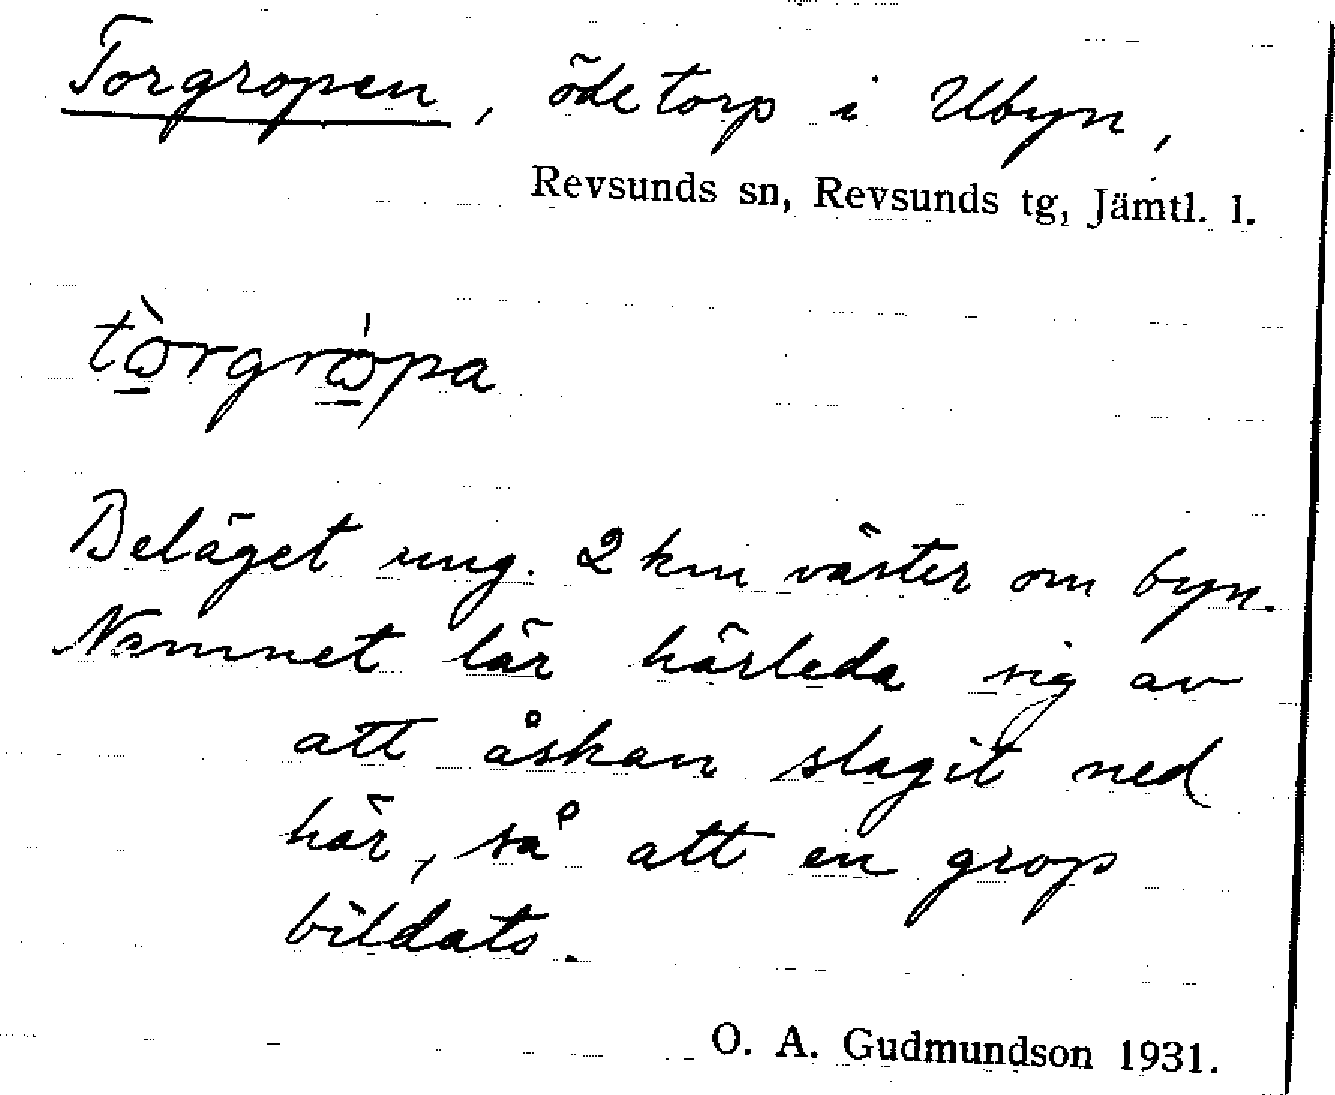 Torgropen, öde torp i Ubyn,
Revsunds sn, Revsunds tg, Jämtl. l.
tɷ̀rgrɷ́pa
Beläget ung. 2 km väster om byn.
Namnet lär härleda sig av
att åskan slagit ned
här, så att en grop
bildats.
O. A. Gudmundson 1931.